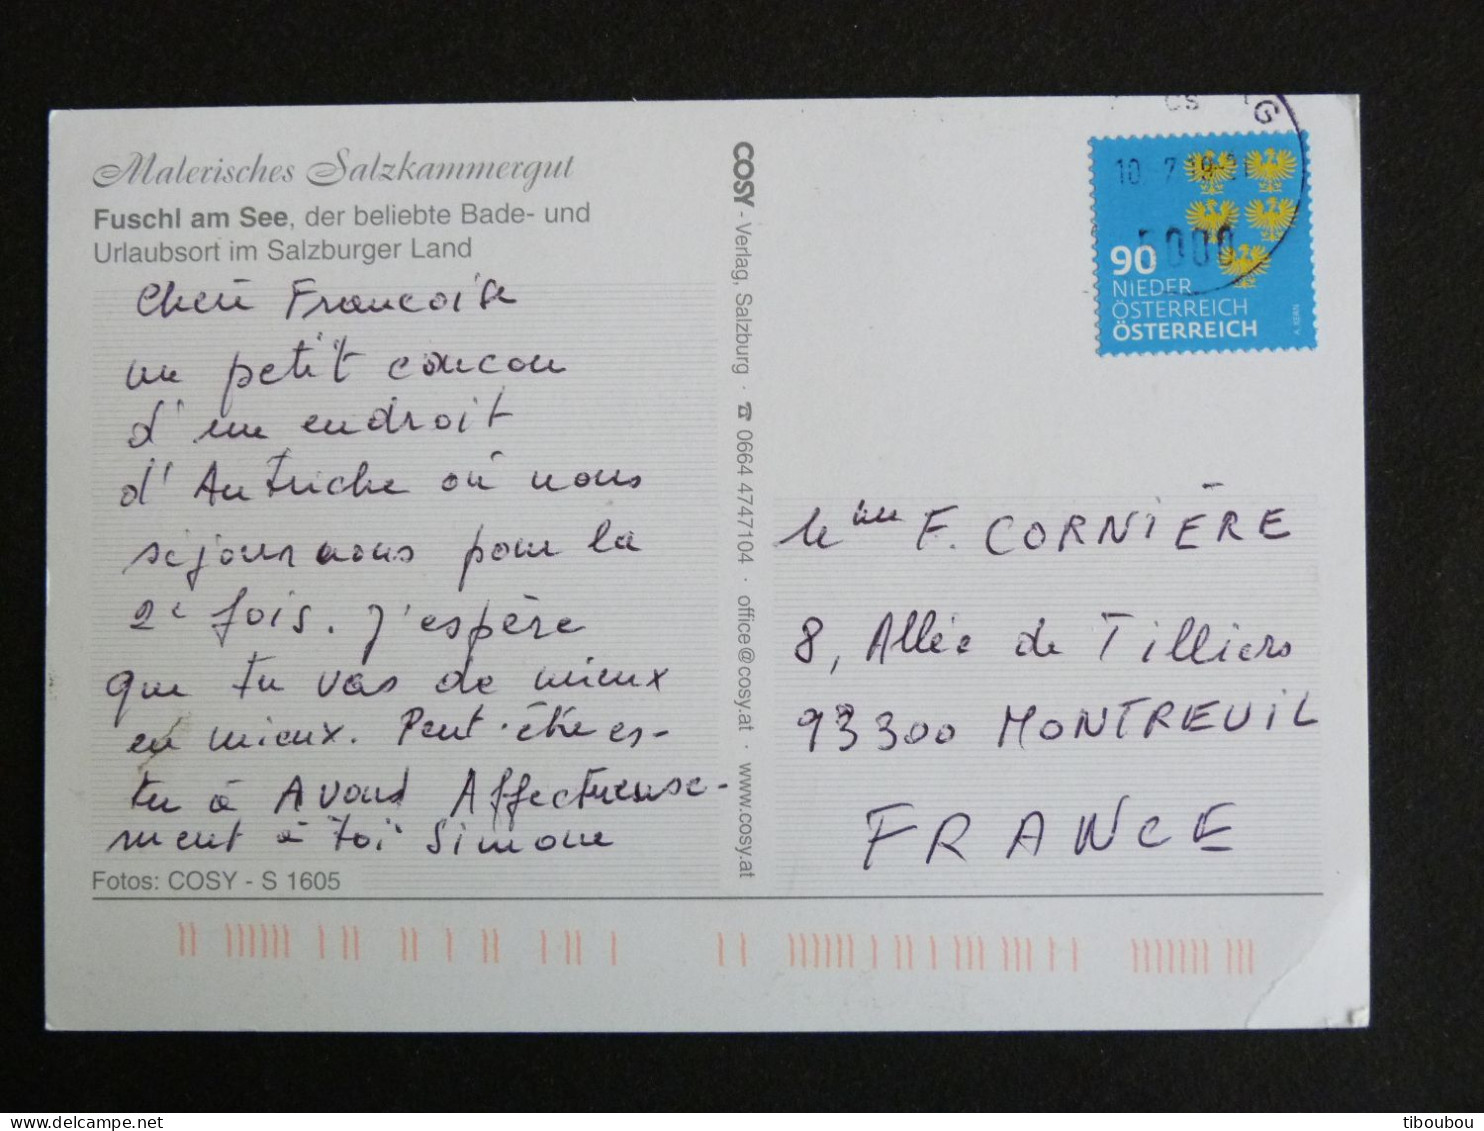 Malerisches Salzkammergut
Fuschl am See, der beliebte Bade- und
Urlaubsort im Salzburger Land
Chère Francoise
un petit coucou
d'un endroit
d'Autriche où nous
séjournons pour la
2e fois. J'espère
que tu vas de mieux
en mieux. Peut-être es-
tu à Avond Affectueuse-
ment à toi Simone
Fotos: COSY - S 1605
COSY - Verlag, Salzburg · ☎ 0664 4747104 · office@cosy.at · www.cosy.at
G
CS
10 7 19
5000
90
NIEDER
ÖSTERREICH
ÖSTERREICH
A. KERN
Mme F. CORNIÈRE
8, Allée de Tilliers
93300 MONTREUIL
FRANCE
delcampe.net
tiboubou